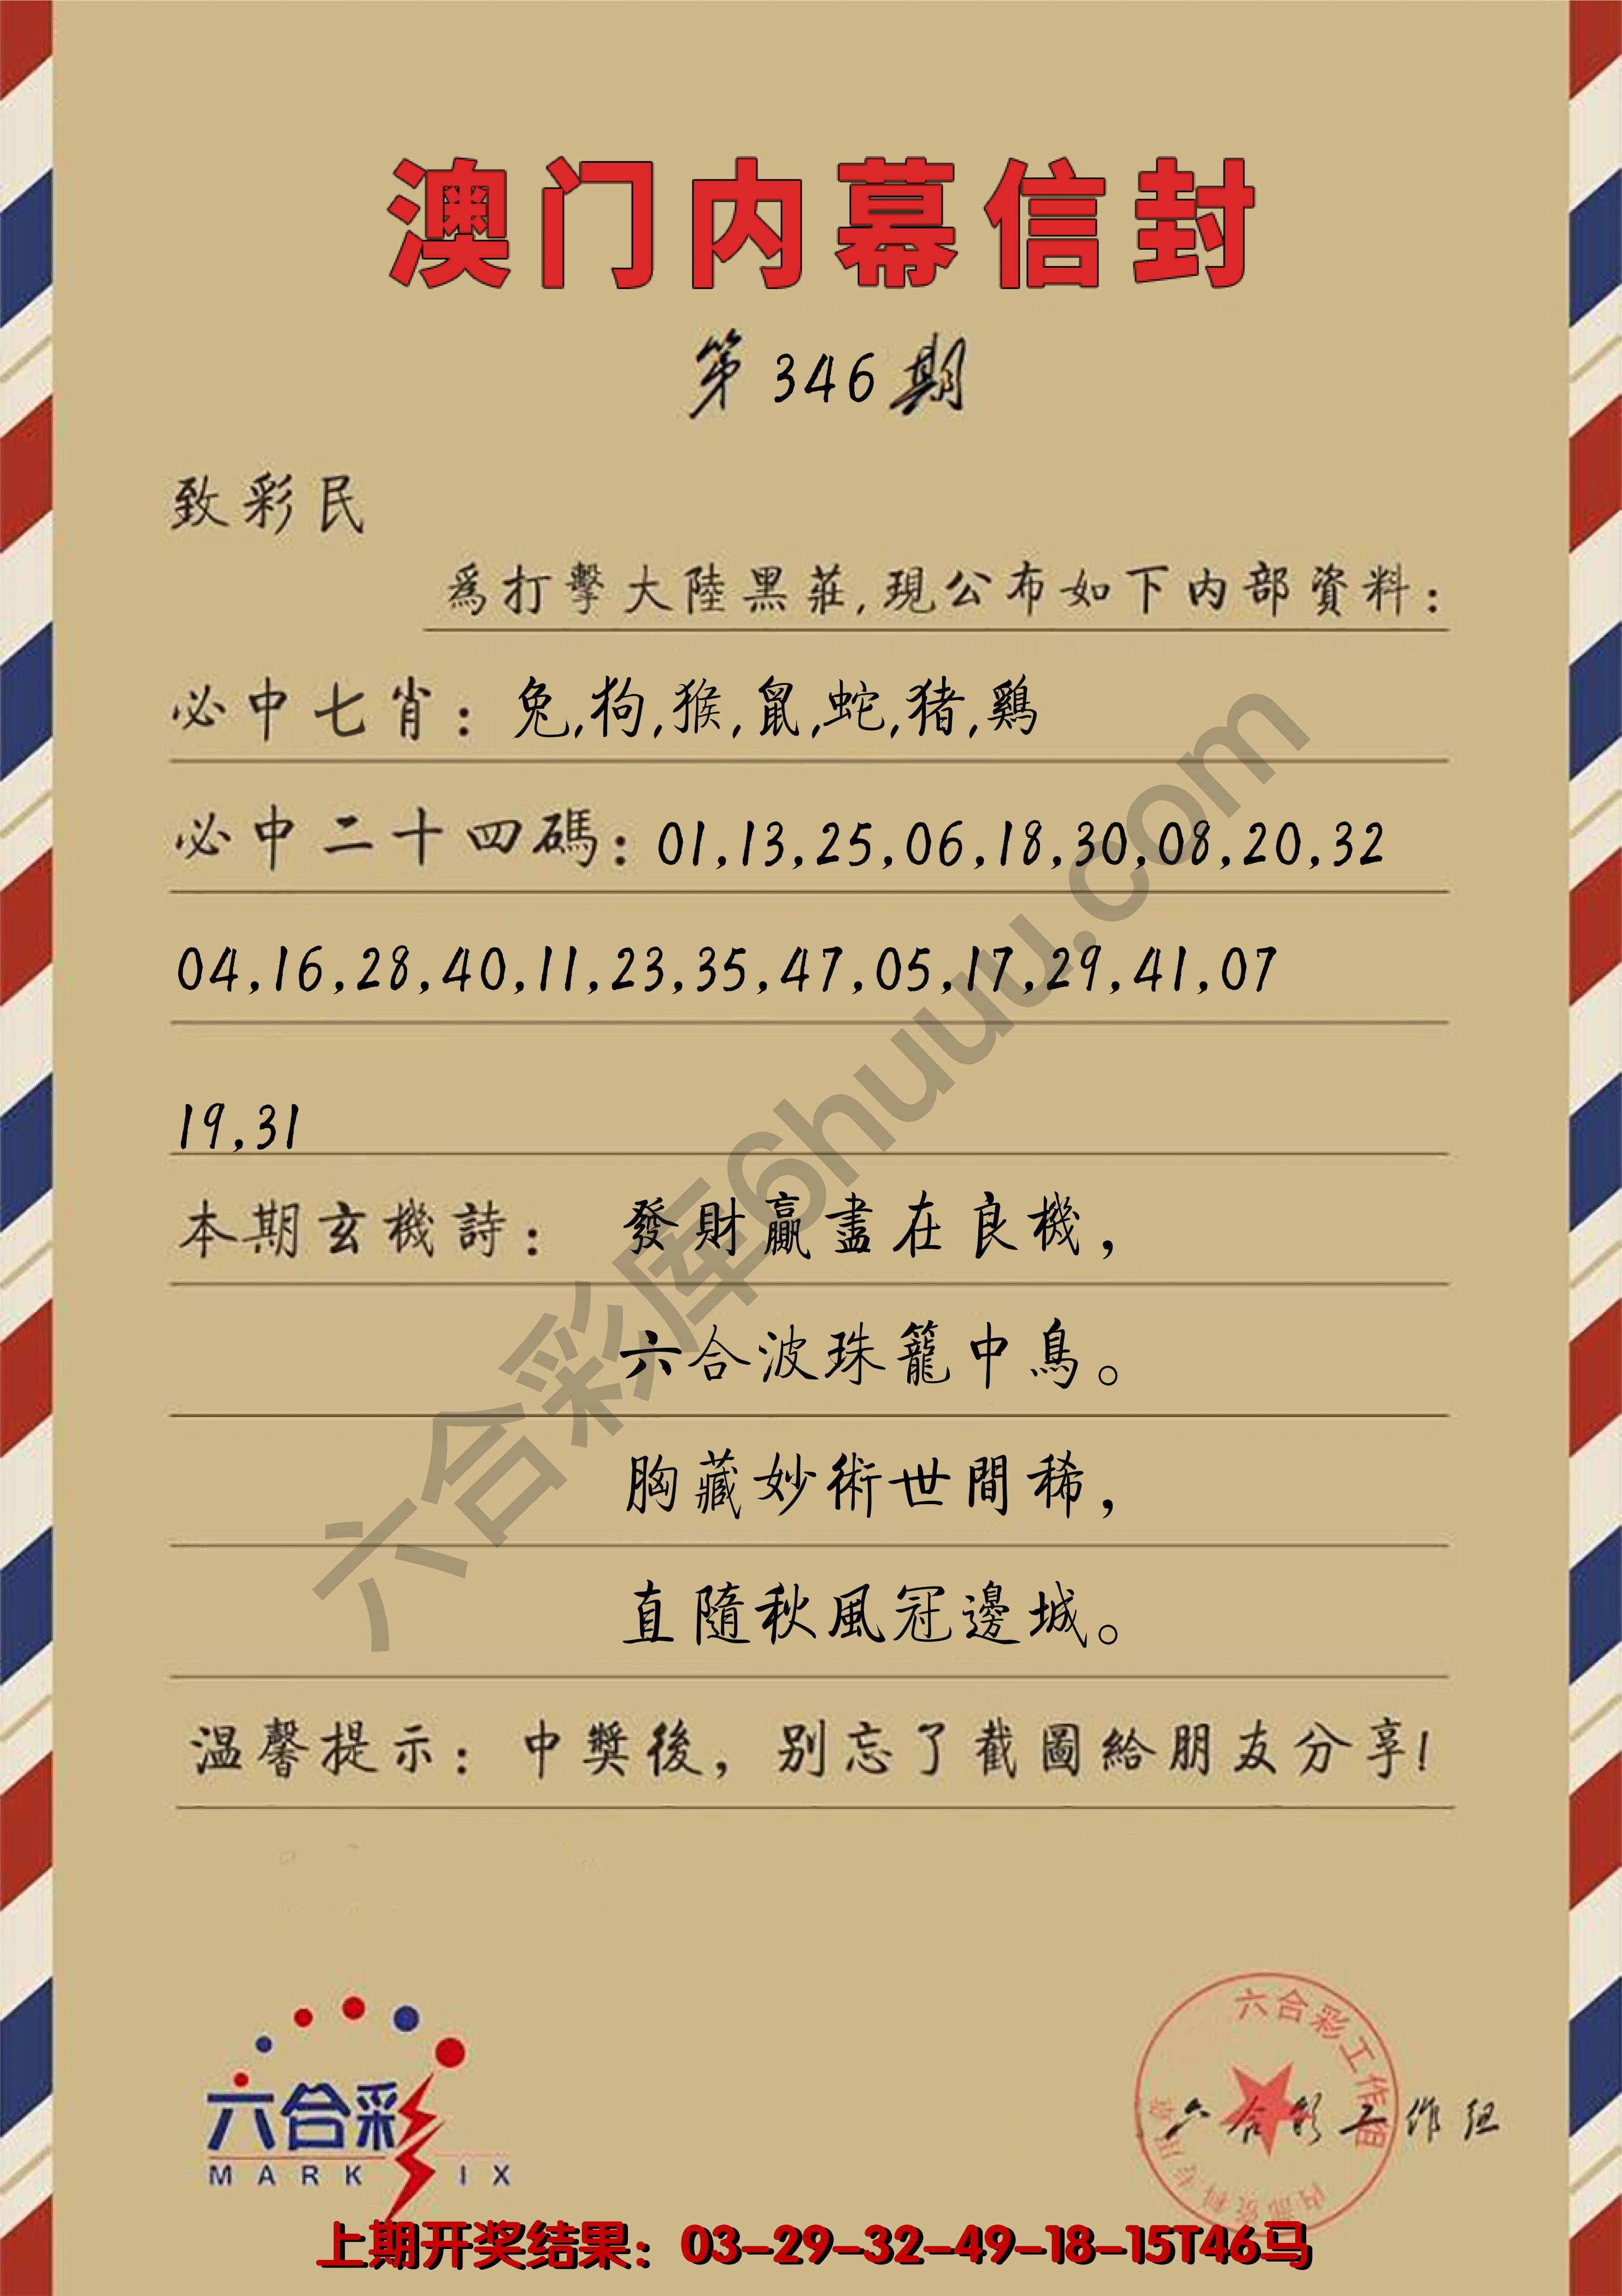 澳门内幕信封
第346期
致彩民
爲打擊大陸黑莊,現公布如下内部資料:
必中七肖: 兔,狗,猴,鼠,蛇,猪,鷄
必中二十四碼: 01,13,25,06,18,30,08,20,32
04,16,28,40,11,23,35,47,05,17,29,41,07
19,31
本期玄機詩: 發財贏盡在良機,
六合波珠籠中鳥。
胸藏妙術世間稀,
直隨秋風冠邊城。
温馨提示: 中獎後, 别忘了截圖給朋友分享!
六合彩库6huuu.com
六合彩
MARK IX
六合彩工作组
六合彩工作组
上期开奖结果: 03-29-32-49-18-15T46马